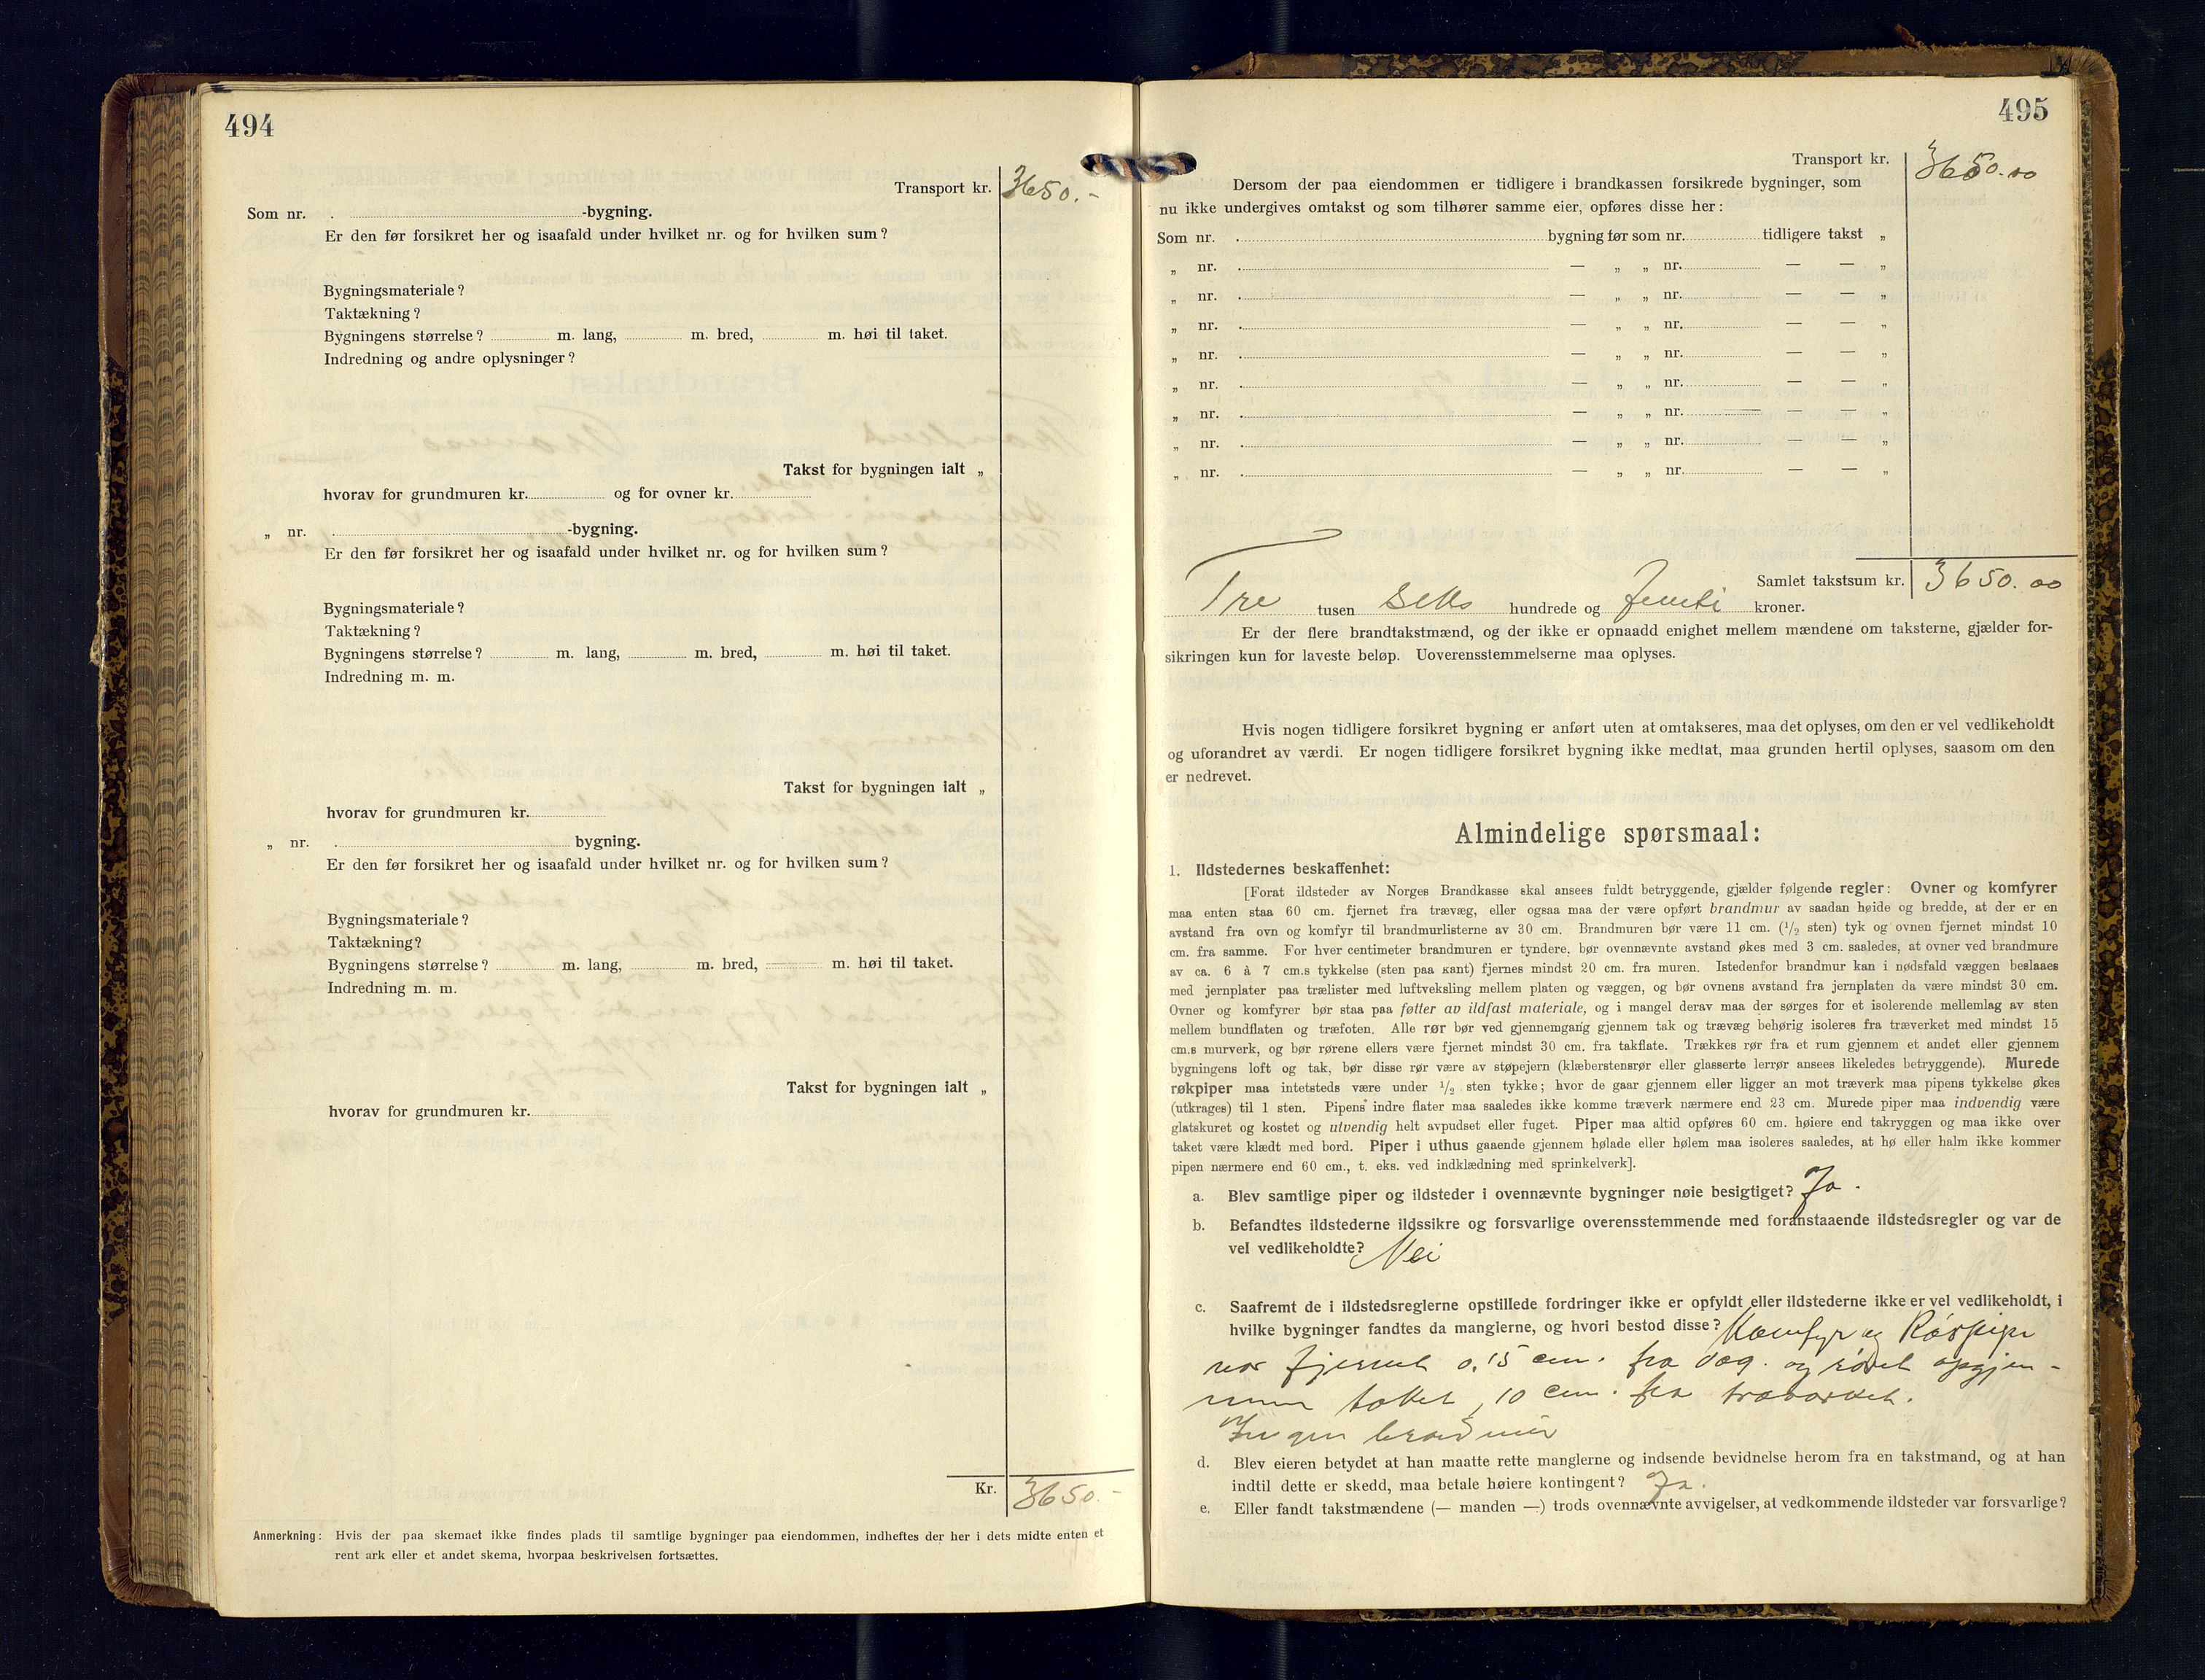 494
Transport kr. 3650.-
Som nr. . -bygning.
Er den før forsikret her og isaafald under hvilket nr. og for hvilken sum?
Bygningsmateriale?
Taktækning?
Bygningens størrelse? m. lang, m. bred, m. høi til taket.
Indredning og andre oplysninger?
Takst for bygningen ialt „
hvorav for grundmuren kr. og for ovner kr.
„ nr. . -bygning.
Er den før forsikret her og isaafald under hvilket nr. og for hvilken sum?
Bygningsmateriale?
Taktækning?
Bygningens størrelse? m. lang, m. bred, m. høi til taket.
Indredning m. m.
Takst for bygningen ialt „
hvorav for grundmuren kr.
„ nr. . bygning.
Er den før forsikret her og isaafald under hvilket nr. og for hvilken sum?
Bygningsmateriale?
Taktækning?
Bygningens størrelse? m. lang, m. bred, m. høi til taket.
Indredning m. m.
Takst for bygningen ialt „
hvorav for grundmuren kr.
Kr. 3650.-
Anmerkning: Hvis der paa skemaet ikke findes plads til samtlige bygninger paa eiendommen, indheftes der her i dets midte enten et
rent ark eller et andet skema, hvorpaa beskrivelsen fortsættes.
495
Transport kr. 3650.00
Dersom der paa eiendommen er tidligere i brandkassen forsikrede bygninger, som
nu ikke undergives omtakst og som tilhører samme eier, opføres disse her:
Som nr. . bygning før som nr. tidligere takst „
„ nr. . — „ „ nr. — — „
„ nr. . — „ „ nr. — — „
„ nr. . — „ „ nr. — — „
„ nr. . — „ „ nr. — — „
„ nr. . — „ „ nr. — — „
„ nr. . — „ „ nr. — — „
„ nr. . — „ „ nr. — — „
„ nr. . — „ „ nr. — — „
Samlet takstsum kr. 3650.00
Tre tusen seks hundrede og femti kroner.
Er der flere brandtakstmænd, og der ikke er opnaadd enighet mellem mændene om taksterne, gjælder for-
sikringen kun for laveste beløp. Uoverensstemmelserne maa oplyses.
Hvis nogen tidligere forsikret bygning er anført uten at omtakseres, maa det oplyses, om den er vel vedlikeholdt
og uforandret av værdi. Er nogen tidligere forsikret bygning ikke medtat, maa grunden hertil oplyses, saasom om den
er nedrevet.
Almindelige spørsmaal:
1. Ildstedernes beskaffenhet:
[Forat ildsteder av Norges Brandkasse skal ansees fuldt betryggende, gjælder følgende regler: Ovner og komfyrer
maa enten staa 60 cm. fjernet fra trævæg, eller ogsaa maa der være opført brandmur av saadan høide og bredde, at der er en
avstand fra ovn og komfyr til brandmurlisterne av 30 cm. Brandmuren bør være 11 cm. (1/2 sten) tyk og ovnen fjernet mindst 10
cm. fra samme. For hver centimeter brandmuren er tyndere, bør ovennævnte avstand økes med 3 cm. saaledes, at ovner ved brandmure
av ca. 6 à 7 cm.s tykkelse (sten paa kant) fjernes mindst 20 cm. fra muren. Istedenfor brandmur kan i nødsfald væggen beslaaes
med jernplater paa trælister med luftveksling mellem platen og væggen, og bør ovnens avstand fra jernplaten da være mindst 30 cm.
Ovner og komfyrer bør staa paa føtter av ildfast materiale, og i mangel derav maa der sørges for et isolerende mellemlag av sten
mellem bundflaten og træfoten. Alle rør bør ved gjennemgang gjennem tak og trævæg behørig isoleres fra træverket med mindst 15
cm.s murverk, og bør rørene ellers være fjernet mindst 30 cm. fra takflate. Trækkes rør fra et rum gjennem et andet eller gjennem
bygningens loft og tak, bør disse rør være av støpejern (klæberstensrør eller glasserte lerrør ansees likeledes betryggende). Murede
røkpiper maa intetsteds være under 1/2 sten tykke; hvor de gaar gjennem eller ligger an mot træverk maa pipens tykkelse økes
(utkrages) til 1 sten. Pipens indre flater maa saaledes ikke komme træverk nærmere end 23 cm. Murede piper maa indvendig være
glatskuret og kostet og utvendig helt avpudset eller fuget. Piper maa altid opføres 60 cm. høiere end takryggen og maa ikke over
taket være klædt med bord. Piper i uthus gaaende gjennem hølade eller hølem maa isoleres saaledes, at hø eller halm ikke kommer
pipen nærmere end 60 cm., t. eks. ved indklædning med sprinkelverk].
a. Blev samtlige piper og ildsteder i ovennævnte bygninger nøie besigtiget? Ja.
b. Befandtes ildstederne ildssikre og forsvarlige overensstemmende med foranstaaende ildstedsregler og var de
vel vedlikeholdte? Nei
c. Saafremt de i ildstedsreglerne opstillede fordringer ikke er opfyldt eller ildstederne ikke er vel vedlikeholdt, i
hvilke bygninger fandtes da manglerne, og hvori bestod disse? Komfyr og Rørpipe
var fjernet 0,15 cm. fra væg. og røret opgjen-
nem taket, 10 cm. fra træværket.
Ingen brandmur
d. Blev eieren betydet at han maatte rette manglerne og indsende bevidnelse herom fra en takstmand, og at han
indtil dette er skedd, maa betale høiere kontingent? Ja.
e. Eller fandt takstmændene (— manden —) trods ovennævnte avvigelser, at vedkommende ildsteder var forsvarlige?